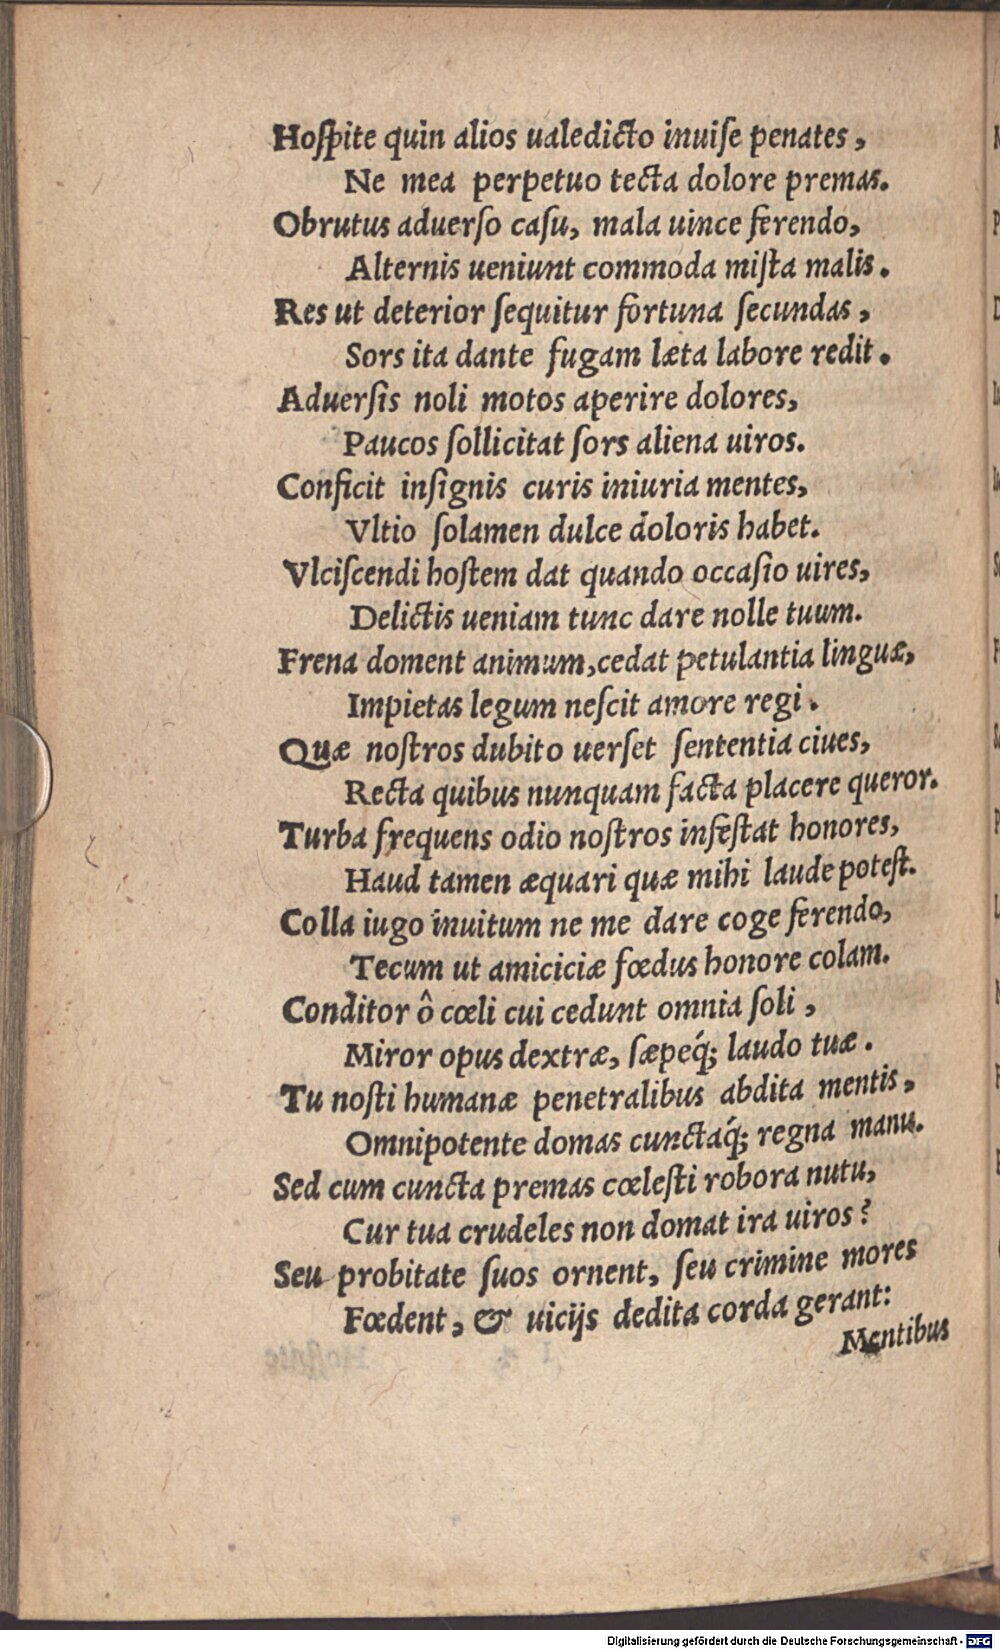 Hoſpite quin alios ualedicto inuiſe penates,
Ne mea perpetuo tecta dolore premas.
Obrutus aduerſo caſu, mala uince ferendo,
Alternis ueniunt commoda miſta malis.
Res ut deterior ſequitur fortuna ſecundas,
Sors ita dante fugam læta labore redit.
Aduerſis noli motos aperire dolores,
Paucos ſollicitat ſors aliena uiros.
Conficit inſignis curis iniuria mentes,
Vltio ſolamen dulce doloris habet.
Vlciſcendi hoſtem dat quando occaſio uires,
Delictis ueniam tunc dare nolle tuum.
Frena doment animum, cedat petulantia linguæ,
Impietas legum neſcit amore regi.
Quæ noſtros dubito uerſet ſententia ciues,
Recta quibus nunquam facta placere queror.
Turba frequens odio noſtros infeſtat honores,
Haud tamen æquari quæ mihi laude poteſt.
Colla iugo inuitum ne me dare coge ferendo,
Tecum ut amiciciæ fœdus honore colam.
Conditor ô cœli cui cedunt omnia ſoli,
Miror opus dextræ, ſæpeq́; laudo tuæ.
Tu noſti humanæ penetralibus abdita mentis,
Omnipotente domas cunctaq́; regna manu.
Sed cum cuncta premas cœleſti robora nutu,
Cur tua crudeles non domat ira uiros?
Seu probitate ſuos ornent, ſeu crimine mores
Fœdent, & uicijs dedita corda gerant:
Mentibus
Digitalisierung gefördert durch die Deutsche Forschungsgemeinschaft - DFG